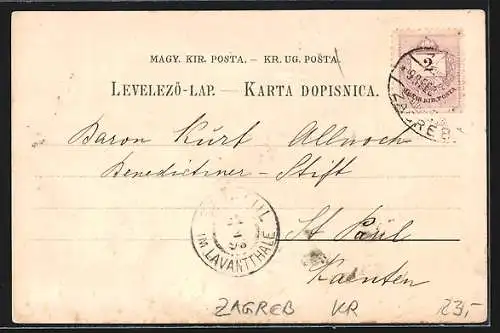 MAGY. KIR. POSTA. – KR. UG. POŠTA.
LEVELEZŐ-LAP. — KARTA DOPISNICA.
2
ZAGREB
Baron Kurt Allnoch
Benedictiner - Stift
St Paul
IM LAVANTTHALE
Kaenten
ZAGREB KR 23,-